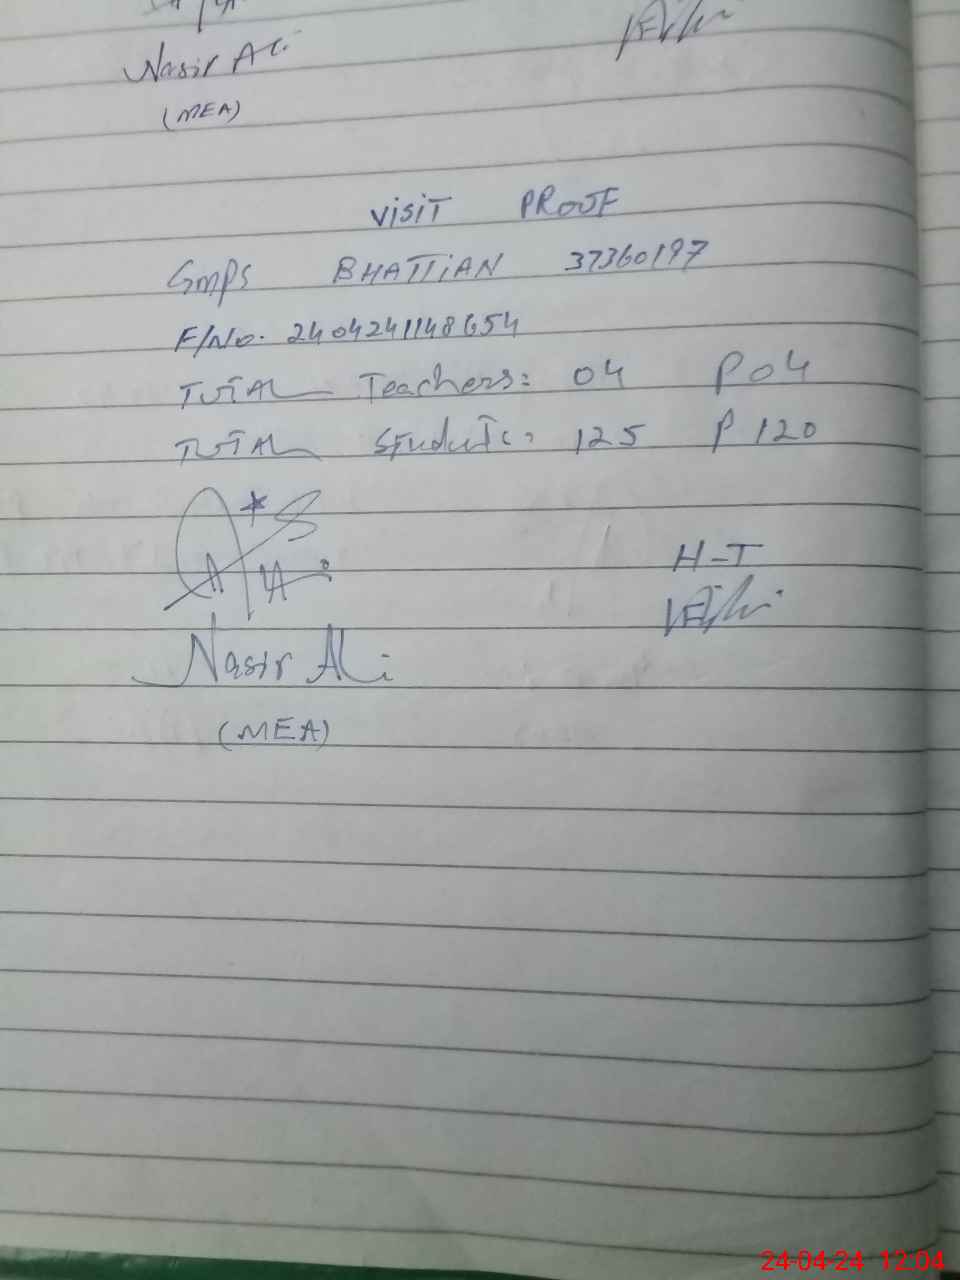 Nasir Ali
(MEA)
VISIT PROOF
GMPS BHATTIAN 37360197
F/No. 2404241148654
TOTAL Teachers: 04 P 04
TOTAL Students: 125 P 120
H-T
Nasir Ali
(MEA)
24-04-24 12:04